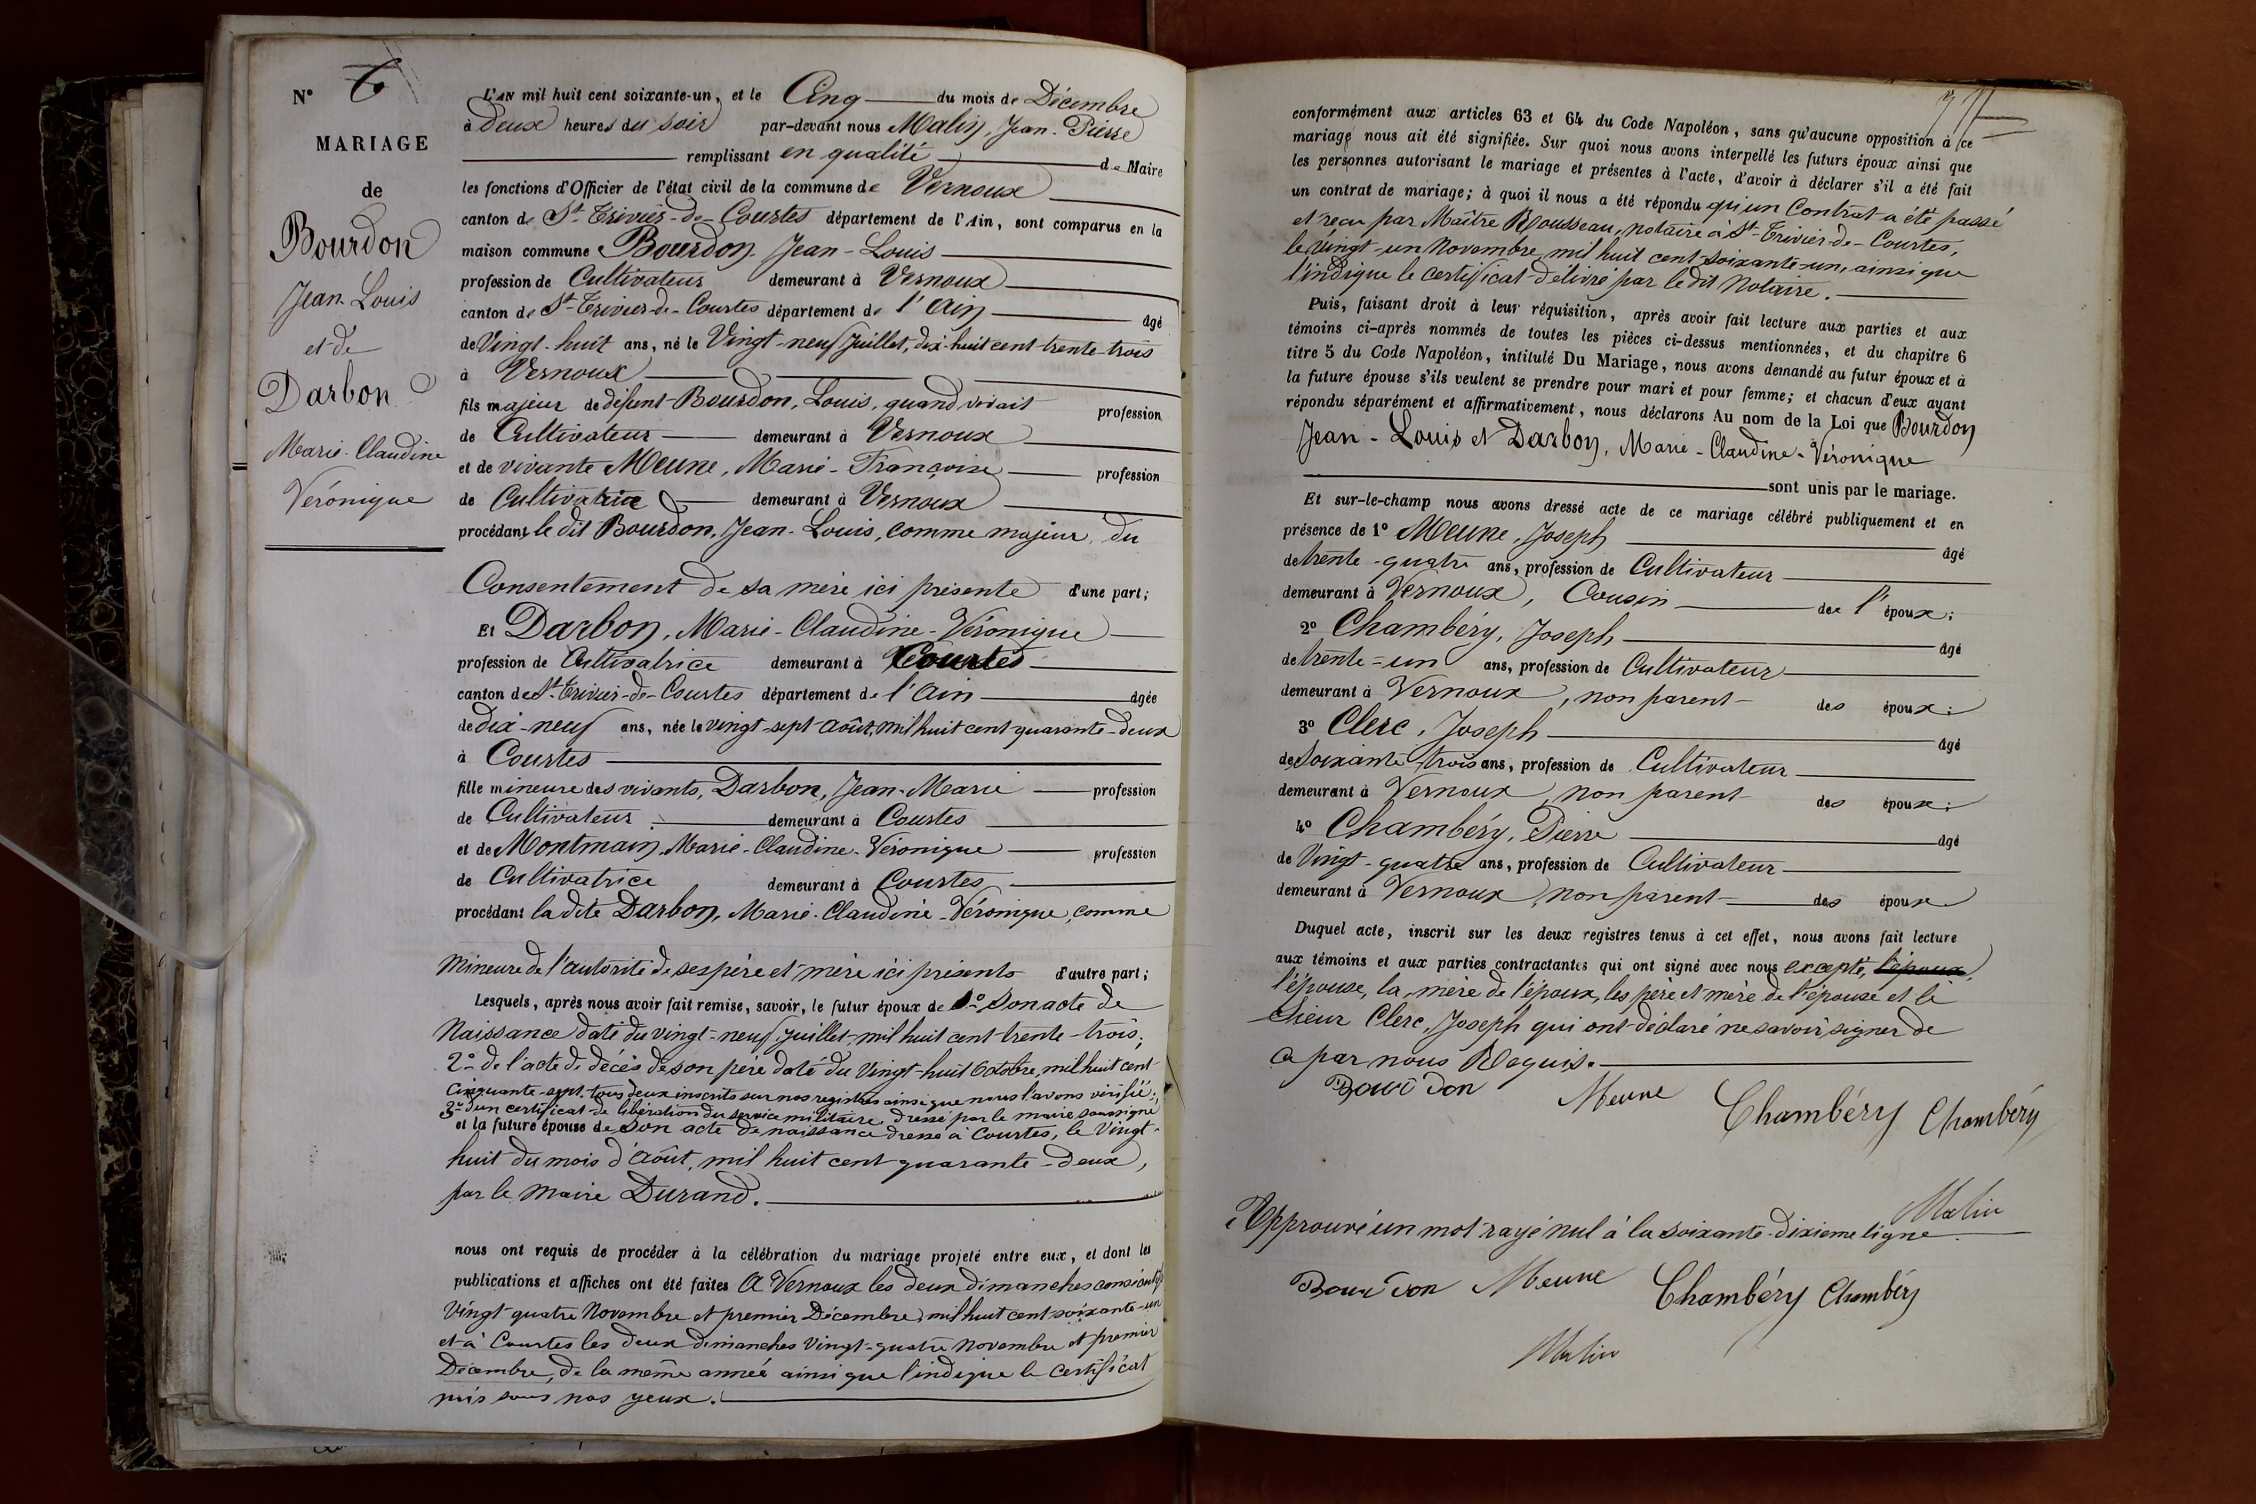 N° 6
MARIAGE
de
Bourdon
Jean-Louis
et de
Darbon
Marie-Claudine
Véronique
L'AN mil huit cent soixante-un, et le Cinq du mois de Décembre
à Deux heures du soir par-devant nous Malin, Jean-Pierre
remplissant en qualité de Maire
les fonctions d'Officier de l'état civil de la commune de Vernoux
canton de St-Trivier-de-Courtes département de l'Ain, sont comparus en la
maison commune Bourdon Jean-Louis
profession de Cultivateur demeurant à Vernoux
canton de St-Trivier-de-Courtes département de l'Ain âgé
de Vingt-huit ans, né le Vingt-neuf Juillet, dix-huit cent trente-trois
à Vernoux
fils majeur de défunt Bourdon, Louis, quand vivait profession
de Cultivateur demeurant à Vernoux
et de vivante Meune, Marie-Françoise profession
de Cultivatrice demeurant à Vernoux
procédant le dit Bourdon, Jean-Louis, comme majeur, du
Consentement de sa mère ici présente d'une part;
Et Darbon, Marie-Claudine-Véronique
profession de Cultivatrice demeurant à Courtes
canton de St-Trivier-de-Courtes département de l'Ain âgée
de dix-neuf ans, née le vingt-sept Août, mil huit cent quarante-deux
à Courtes
fille mineure des vivants, Darbon, Jean-Marie profession
de Cultivateur demeurant à Courtes
et de Montmain, Marie-Claudine-Véronique profession
de Cultivatrice demeurant à Courtes
procédant la dite Darbon, Marie-Claudine-Véronique, comme
Mineure de l'autorité de ses père et mère ici présents d'autre part;
Lesquels, après nous avoir fait remise, savoir, le futur époux de 1° Son acte de
Naissance daté du vingt-neuf Juillet, mil huit cent trente-trois;
2° de l'acte de décès de son père daté du Vingt-huit Octobre, mil huit cent
Cinquante-sept, tous deux inscrits sur nos registres ainsi que nous l'avons vérifié;
3° d'un certificat de libération du service militaire, dressé par le maire soussigné
et la future épouse de Son acte de naissance dressé à Courtes, le Vingt-
huit du mois d'Août, mil huit cent quarante-deux,
par le Maire Durand.
nous ont requis de procéder à la célébration du mariage projeté entre eux, et dont les
publications et affiches ont été faites A Vernoux les deux dimanches consécutifs
Vingt-quatre Novembre et premier Décembre, mil huit cent soixante-un
et à Courtes les deux dimanches Vingt-quatre Novembre et premier
Décembre, de la même année ainsi que l'indique le Certificat
mis sous nos yeux.
conformément aux articles 63 et 64 du Code Napoléon, sans qu'aucune opposition à ce
mariage nous ait été signifiée. Sur quoi nous avons interpellé les futurs époux ainsi que
les personnes autorisant le mariage et présentes à l'acte, d'avoir à déclarer s'il a été fait
un contrat de mariage; à quoi il nous a été répondu qu'un Contrat a été passé
et reçu par Maître Rousseau, notaire à St-Trivier-de-Courtes,
le Vingt-un Novembre mil huit cent soixante-un, ainsi que
l'indique le certificat délivré par le dit Notaire.
Puis, faisant droit à leur réquisition, après avoir fait lecture aux parties et aux
témoins ci-après nommés de toutes les pièces ci-dessus mentionnées, et du chapitre 6
titre 5 du Code Napoléon, intitulé Du Mariage, nous avons demandé au futur époux et à
la future épouse s'ils veulent se prendre pour mari et pour femme; et chacun d'eux ayant
répondu séparément et affirmativement, nous déclarons Au nom de la Loi que Bourdon
Jean-Louis et Darbon, Marie-Claudine-Véronique
sont unis par le mariage.
Et sur-le-champ nous avons dressé acte de ce mariage célébré publiquement et en
présence de 1° Meune, Joseph âgé
de trente-quatre ans, profession de Cultivateur
demeurant à Vernoux, Cousin de l'époux;
2° Chambéry, Joseph âgé
de trente-un ans, profession de Cultivateur
demeurant à Vernoux, non parent des époux;
3° Clerc, Joseph âgé
de soixante-trois ans, profession de Cultivateur
demeurant à Vernoux, non parent des époux;
4° Chambéry, Pierre âgé
de Vingt-quatre ans, profession de Cultivateur
demeurant à Vernoux, non parent des époux
Duquel acte, inscrit sur les deux registres tenus à cet effet, nous avons fait lecture
aux témoins et aux parties contractantes qui ont signé avec nous excepté, l'époux,
l'épouse, la mère de l'époux, les père et mère de l'épouse et le
Sieur Clerc, Joseph qui ont déclaré ne savoir signer de
ce par nous Requis.
Bourdon Meune Chambéry Chambéry
Malin
Approuvé un mot rayé nul à la soixante-dixième ligne
Bourdon Meune Chambéry Chambéry
Malin